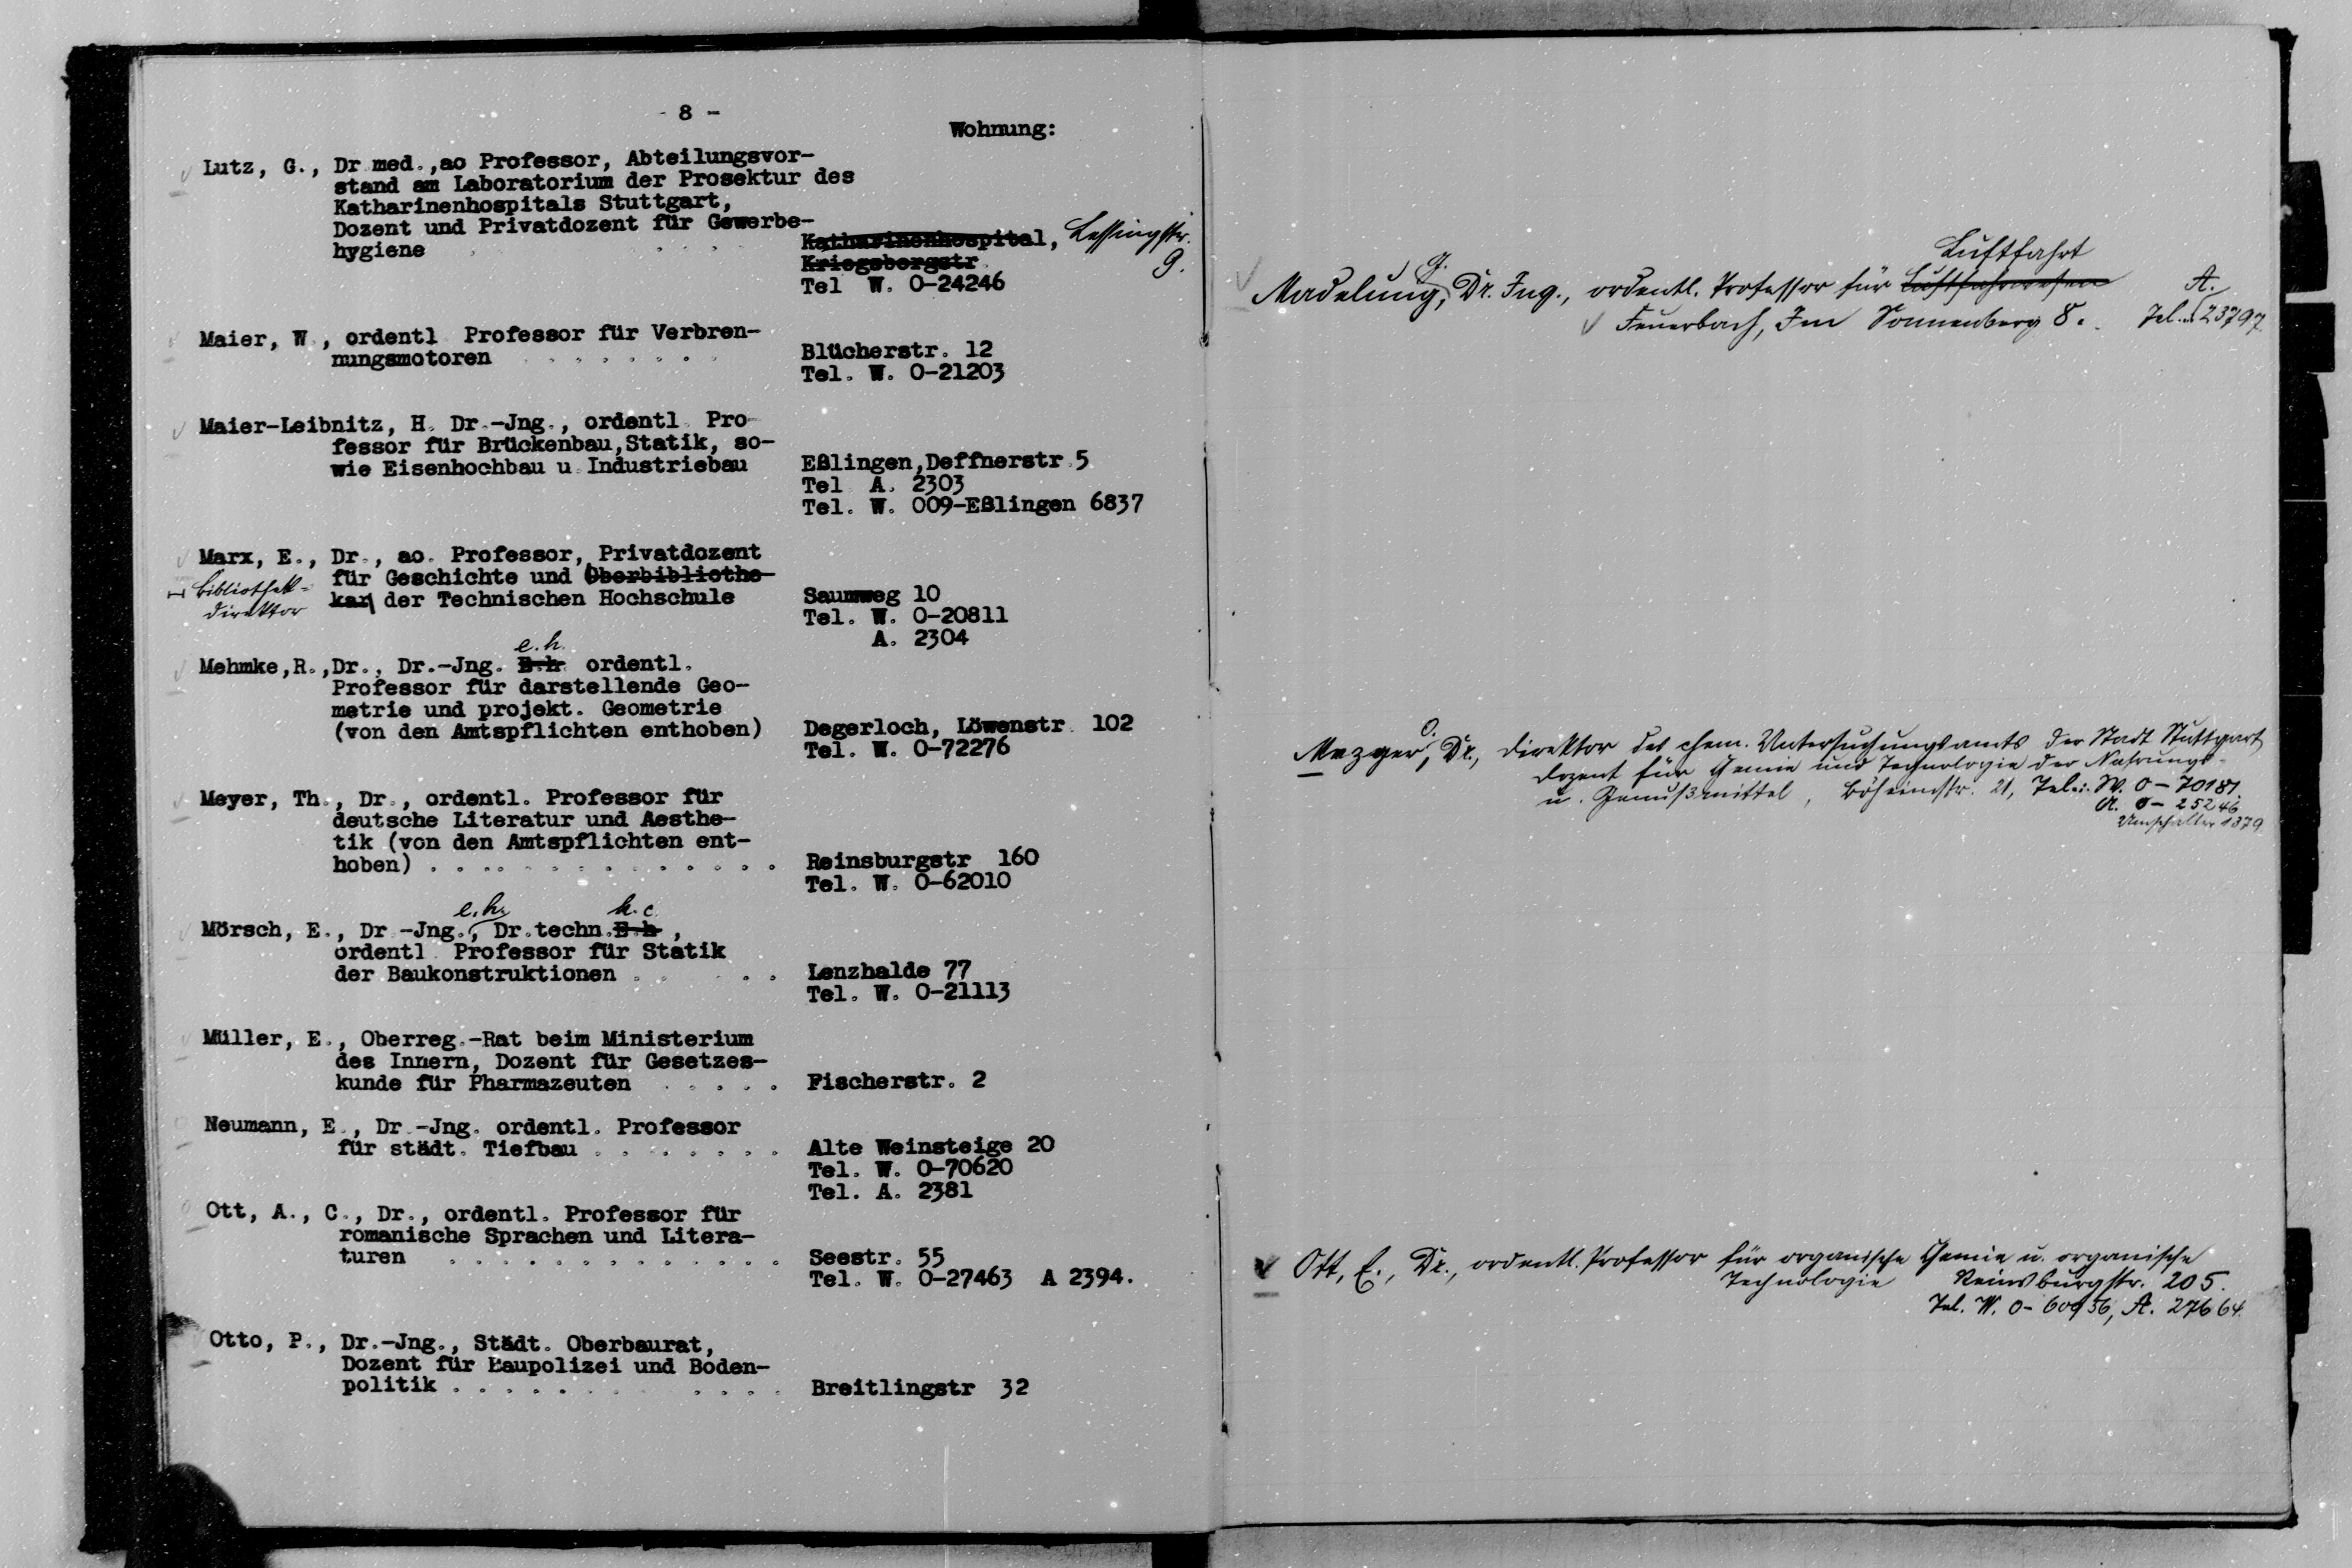 - 8 -
Wohnung:
Lutz, G., Dr med.,ao Professor, Abteilungsvor-
stand am Laboratorium der Prosektur des
Katharinenhospitals Stuttgart,
Dozent und Privatdozent für Gewerbe-
hygiene
Katharinenhospital, Lessingstr.
Kriegsbergstr 9.
Tel W. O-24246
Maier, W., ordentl Professor für Verbren-
nungsmotoren . . . . . . .
Blücherstr. 12
Tel. W. O-21203
Maier-Leibnitz, H. Dr.-Jng., ordentl. Pro-
fessor für Brückenbau,Statik, so-
wie Eisenhochbau u. Industriebau
Eßlingen,Deffnerstr.5
Tel A. 2303
Tel. W. 009-Eßlingen 6837
Marx, E., Dr., ao. Professor, Privatdozent
für Geschichte und Oberbibliothe-
Bibliothek-
kar der Technischen Hochschule
direktor
Saumweg 10
Tel. W. O-20811
A. 2304
e.h.
Mehmke,R.,Dr., Dr.-Jng. E.h. ordentl.
Professor für darstellende Geo-
metrie und projekt. Geometrie
(von den Amtspflichten enthoben)
Degerloch, Löwenstr. 102
Tel. W. O-72276
Meyer, Th., Dr., ordentl. Professor für
deutsche Literatur und Aesthe-
tik (von den Amtspflichten ent-
hoben) . . . . . . . . . . . . .
Reinsburgstr 160
Tel. W. O-62010
e.h. h.c.
Mörsch, E., Dr.-Jng., Dr.techn.E.h.,
ordentl. Professor für Statik
der Baukonstruktionen . . . . .
Lenzhalde 77
Tel. W. O-21113
Müller, E., Oberreg.-Rat beim Ministerium
des Innern, Dozent für Gesetzes-
kunde für Pharmazeuten . . . . .
Fischerstr. 2
Neumann, E., Dr.-Jng. ordentl. Professor
für städt. Tiefbau . . . . . . .
Alte Weinsteige 20
Tel. W. O-70620
Tel. A. 2381
Ott, A., C., Dr., ordentl. Professor für
romanische Sprachen und Litera-
turen . . . . . . . . . . . . .
Seestr. 55
Tel. W. O-27463 A 2394.
Otto, P., Dr.-Jng., Städt. Oberbaurat,
Dozent für Baupolizei und Boden-
politik . . . . . . . . . . . .
Breitlingstr 32
Luftfahrt
Madelung, G. Dr. Ing., ordentl. Professor für Luftfahrwesen
Feuerbach, Im Sonnenberg 8. Tel. A. 23797
Mezger, O. Dr., Direktor des chem. Untersuchungsamts der Stadt Stuttgart
Dozent für Chemie und Technologie der Nahrungs-
u. Genußmittel, Böheimstr. 21, Tel.: W. O-70181.
A. O-25246
Umschalter 1379
Ott, E., Dr., ordentl. Professor für organische Chemie u. organische
Technologie Reinsburgstr. 205.
Tel. W. O-60936, A. 27664.